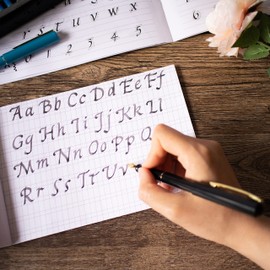 r s t u v w x
0 1 2 3 4 5
Aa Bb Cc Dd Ee Ff
Gg Hh Ii Jj Kk Ll
Mm Nn Oo Pp Q
Rr Ss Tt Uv